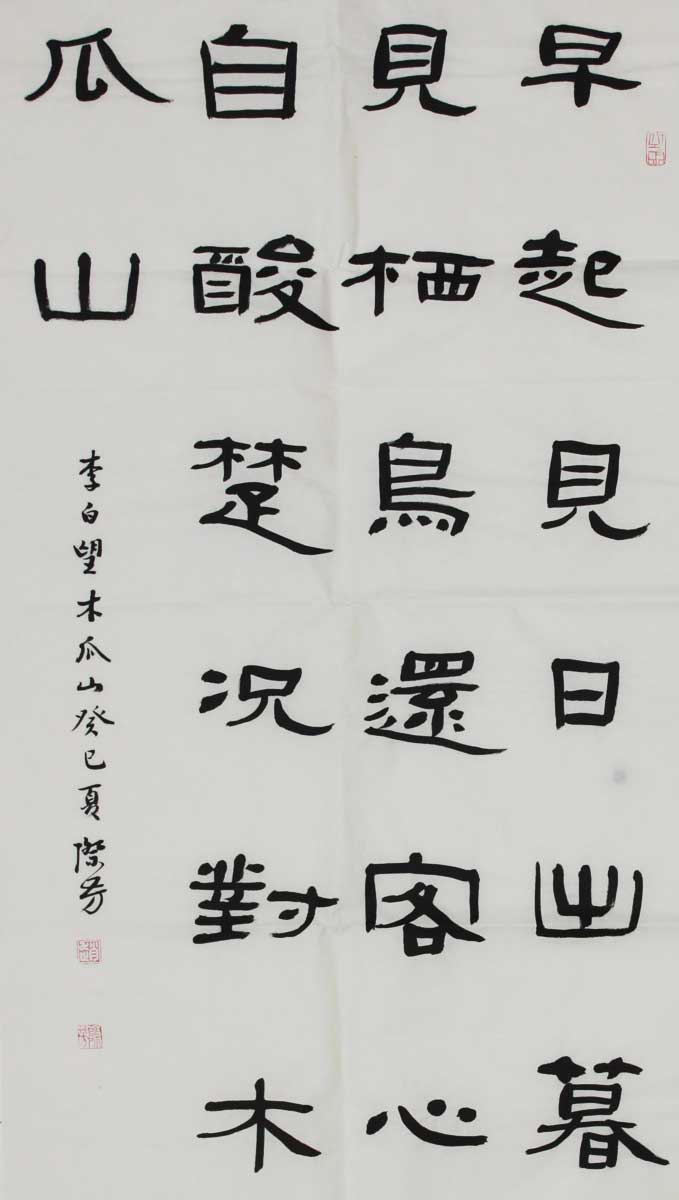 早起見日出暮
見栖鳥還客心
自酸楚況對木
瓜山
李白望木瓜山癸巳夏際芳